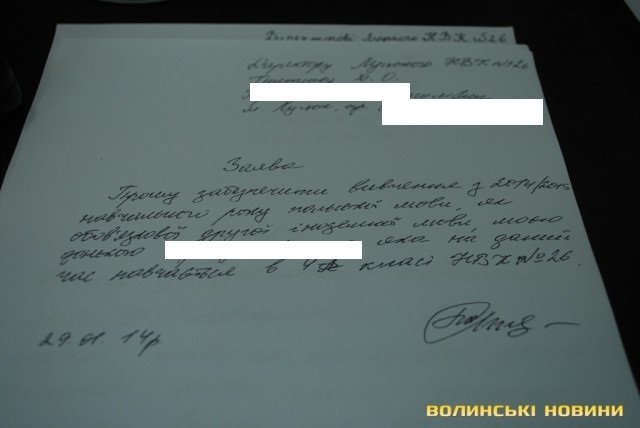 Директору Луцького НВК №26
Директору Луцького НВК №26
м. Луцьк,
Заява
Прошу забезпечити вивчення з 2014/2015
навчального року польської мови, як
обов'язкової другої іноземної мови, моєю
донькою яка на даний
час навчається в 4 класі НВК №26.
29.01.14р.
ВОЛИНСЬКІ НОВИНИ